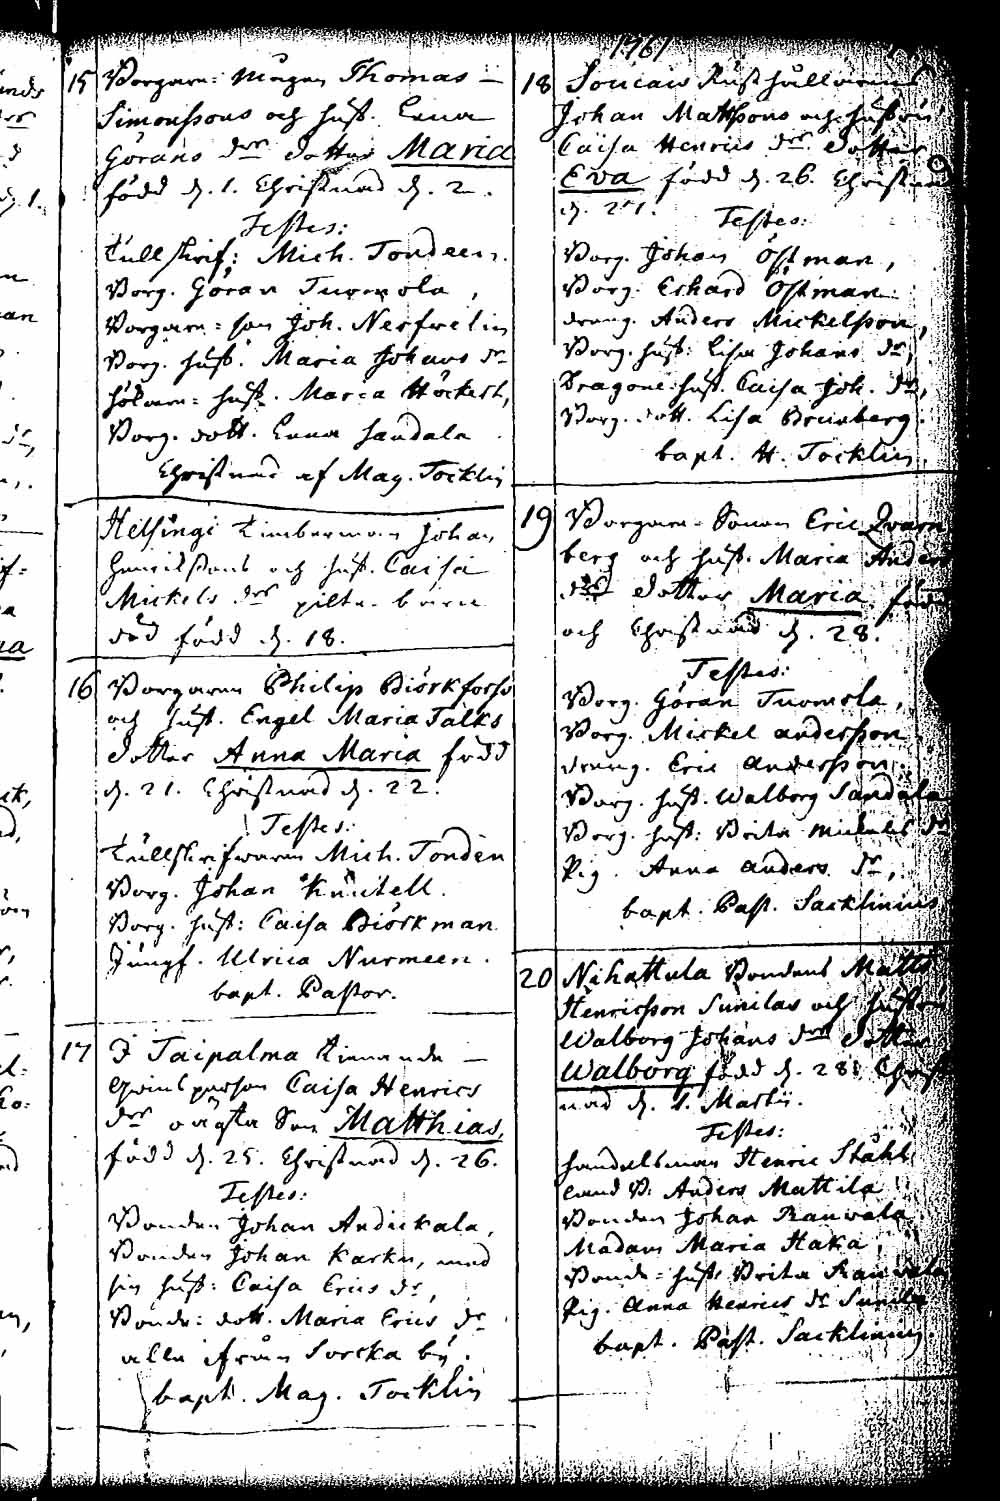 1761
15 Borgare: Mågen Thomas
Simonssons och hust. Anna
Görans dr dotter Maria
född d. 1. Christnad d. 2.
Testes:
Tullskrif: Mich. Tondeen.
Borg. Göran Tuomola,
Borgare= son Joh. Nerfwelin
Borg. hust. Maria Johans dr
hökare= hust. Maria Höckert,
Borg. dott. Anna Sandala
Christnad af Mag. Tocklin
Helsingi Timberman Johan
Henrikssons och hust. Caisa
Mickels dr piltebarn
död född d. 18.
16 Borgaren Philip Biörkforss
och hust. Engel Maria Talks
dotter Anna Maria född
d. 21. Christnad d. 22.
Testes:
Tullskrifwaren Mich. Tondén
Borg. Johan Knutell.
Borg. hust: Caisa Biörkman
Jungf. Ulrica Nurmeen.
bapt. Pastor.
17 I Taipalma
Caisa Henrics
dr oägta Son Matthias,
född d. 25. Christnad d. 26.
Testes:
Bonden Johan Andickala,
Bonden Johan Karku, med
sin hust: Caisa Erics dr,
Bonde: dott. Maria Erics dr
alla ifrån Sorcka by.
bapt. Mag. Tocklin
18 Rusthållarens
Johan Matssons och hustrus
Caisa Henrics dr dotter
Eva född d. 26. Christnad
d. 27.
Testes:
Borg. Johan Östman,
Borg. Erhard Östman
dreng. Anders Mickelsson,
Borg. hust: Lisa Johans dr,
Dragone hust. Caisa Joh. dr,
Borg. dott. Lisa Brunberg.
bapt. H. Tocklin.
19 Borgare- Sonen Eric Qvarn
berg och hust. Maria Anders
dr dotter Maria född
och Christnad d. 28.
Testes:
Borg. Göran Tuomola,
Borg. Mickel andersson
dreng. Eric andersson,
Borg. hust. Walborg Sandala
Borg. hust: Brita Mickels dr
Pig. Anna anders dr,
bapt. Past. Sacklinius
20 Nihattula Bondens Matts
Henricsson Sunilas och hustrus
Walborg Johans dr dotter
Walborg född d. 28. Christ
nad d. 1. Martii.
Testes:
handelsman Henric Ståhl
Anders Mattila
Bonden Johan Rauvola
Madam Maria Haka,
Bonde= hust. Brita Rauvola
Pig. Anna Henrics dr Sunila
bapt. Past. Sacklinius.